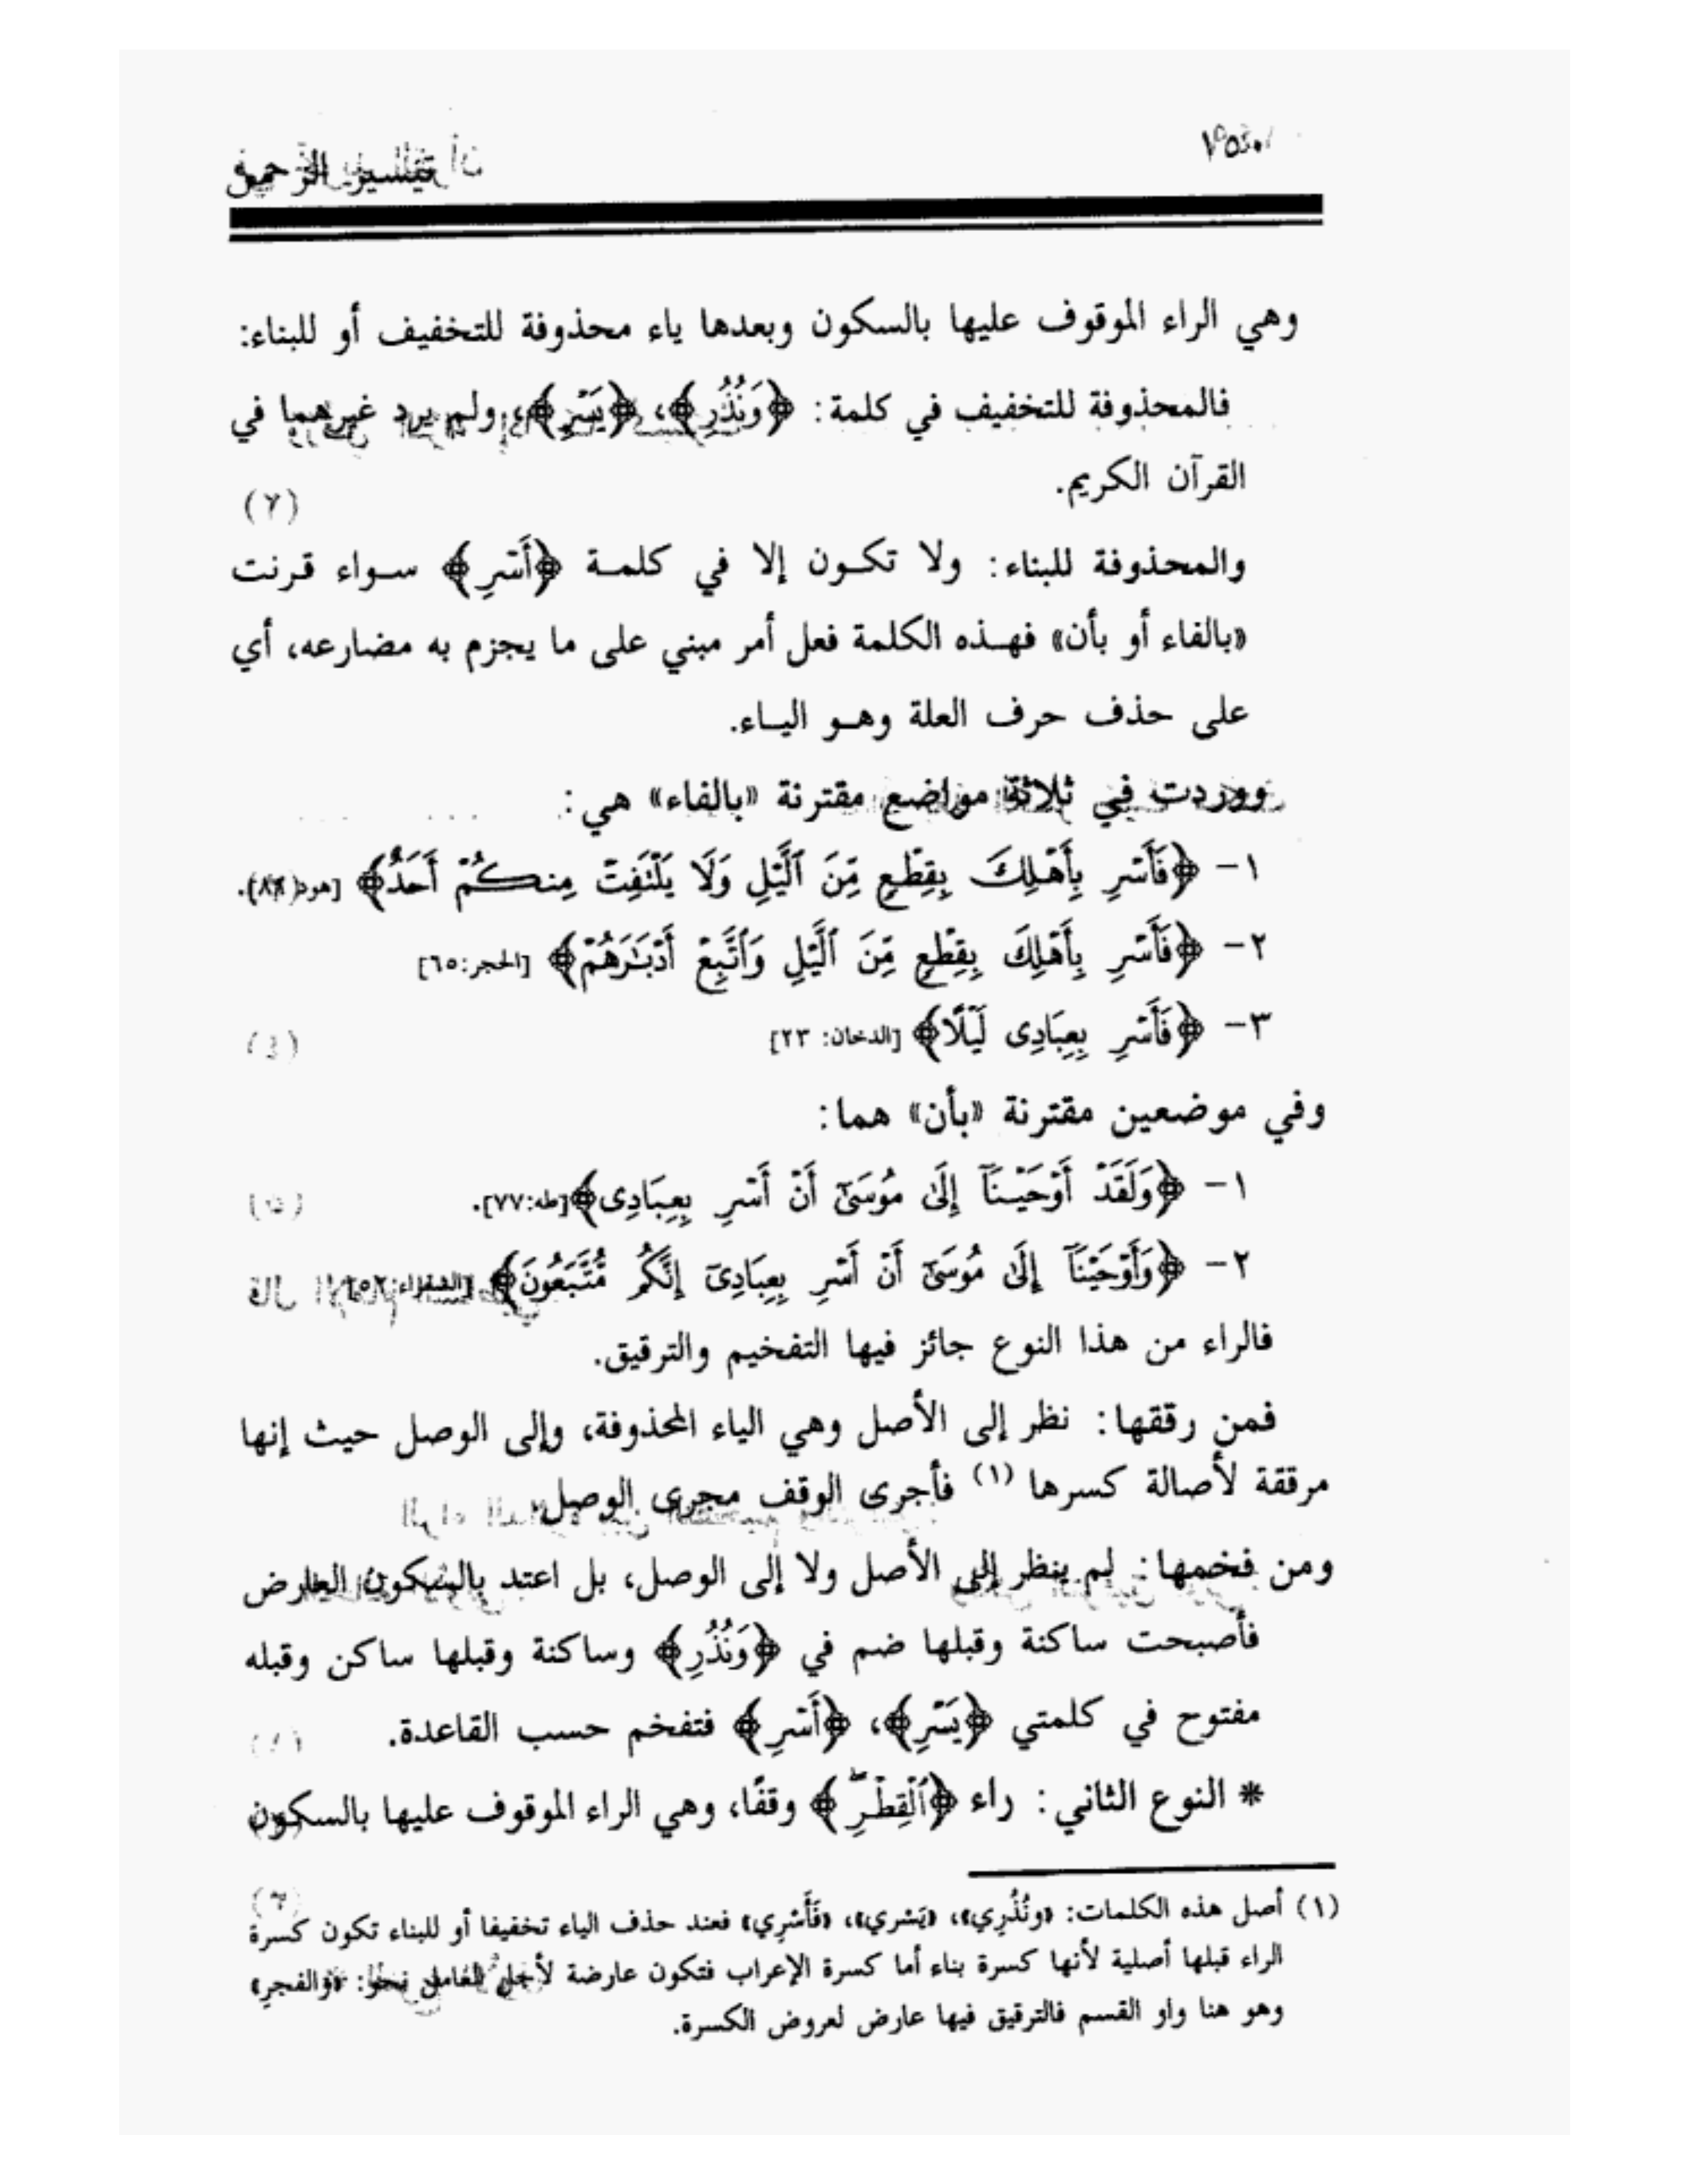 تيسير الرحمن
وهي الراء الموقوف عليها بالسكون وبعدها ياء محذوفة للتخفيف أو للبناء:
فالمحذوفة للتخفيف في كلمة: ﴿وَنُذُرِ﴾، ﴿يَسْرِ﴾، ولم يرد غيرهما في
القرآن الكريم.
والمحذوفة للبناء: ولا تكون إلا في كلمة ﴿أَسْرِ﴾ سواء قرنت
«بالفاء أو بأن» فهذه الكلمة فعل أمر مبني على ما يجزم به مضارعه، أي
على حذف حرف العلة وهو الياء.
ووردت في ثلاثة مواضع مقترنة «بالفاء» هي:
١- ﴿فَأَسْرِ بِأَهْلِكَ بِقِطْعٍ مِّنَ ٱلَّيْلِ وَلَا يَلْتَفِتْ مِنكُمْ أَحَدٌ﴾ [هود:
٢- ﴿فَأَسْرِ بِأَهْلِكَ بِقِطْعٍ مِّنَ ٱلَّيْلِ وَٱتَّبِعْ أَدْبَـٰرَهُمْ﴾ [الحجر:٦٥]
٣- ﴿فَأَسْرِ بِعِبَادِى لَيْلًا﴾ [الدخان: ٢٣]
وفي موضعين مقترنة «بأن» هما:
١- ﴿وَلَقَدْ أَوْحَيْنَآ إِلَىٰ مُوسَىٰٓ أَنْ أَسْرِ بِعِبَادِى﴾ [طه:٧٧].
٢- ﴿وَأَوْحَيْنَآ إِلَىٰ مُوسَىٰٓ أَنْ أَسْرِ بِعِبَادِىٓ إِنَّكُم مُّتَّبَعُونَ﴾ [الشعراء:٥٢]
فالراء من هذا النوع جائز فيها التفخيم والترقيق.
فمن رققها: نظر إلى الأصل وهي الياء المحذوفة، وإلى الوصل حيث إنها
مرققة لأصالة كسرها (١) فأجرى الوقف مجرى الوصل.
ومن فخمها: لم ينظر إلى الأصل ولا إلى الوصل، بل اعتد بالسكون العارض
فأصبحت ساكنة وقبلها ضم في ﴿وَنُذُرِ﴾ وساكنة وقبلها ساكن وقبله
مفتوح في كلمتي ﴿يَسْرِ﴾، ﴿أَسْرِ﴾ فتفخم حسب القاعدة.
* النوع الثاني: راء ﴿ٱلْقِطْرِ ۖ﴾ وقفًا، وهي الراء الموقوف عليها بالسكون
(١) أصل هذه الكلمات: «ونُذُرِي»، «يَسْري»، «فَأَسْرِي» فعند حذف الياء تخفيفا أو للبناء تكون كسرة
الراء قبلها أصلية لأنها كسرة بناء أما كسرة الإعراب فتكون عارضة لأجل العامل نحو: «وَالفجرِ»
وهو هنا واو القسم فالترقيق فيها عارض لعروض الكسرة.